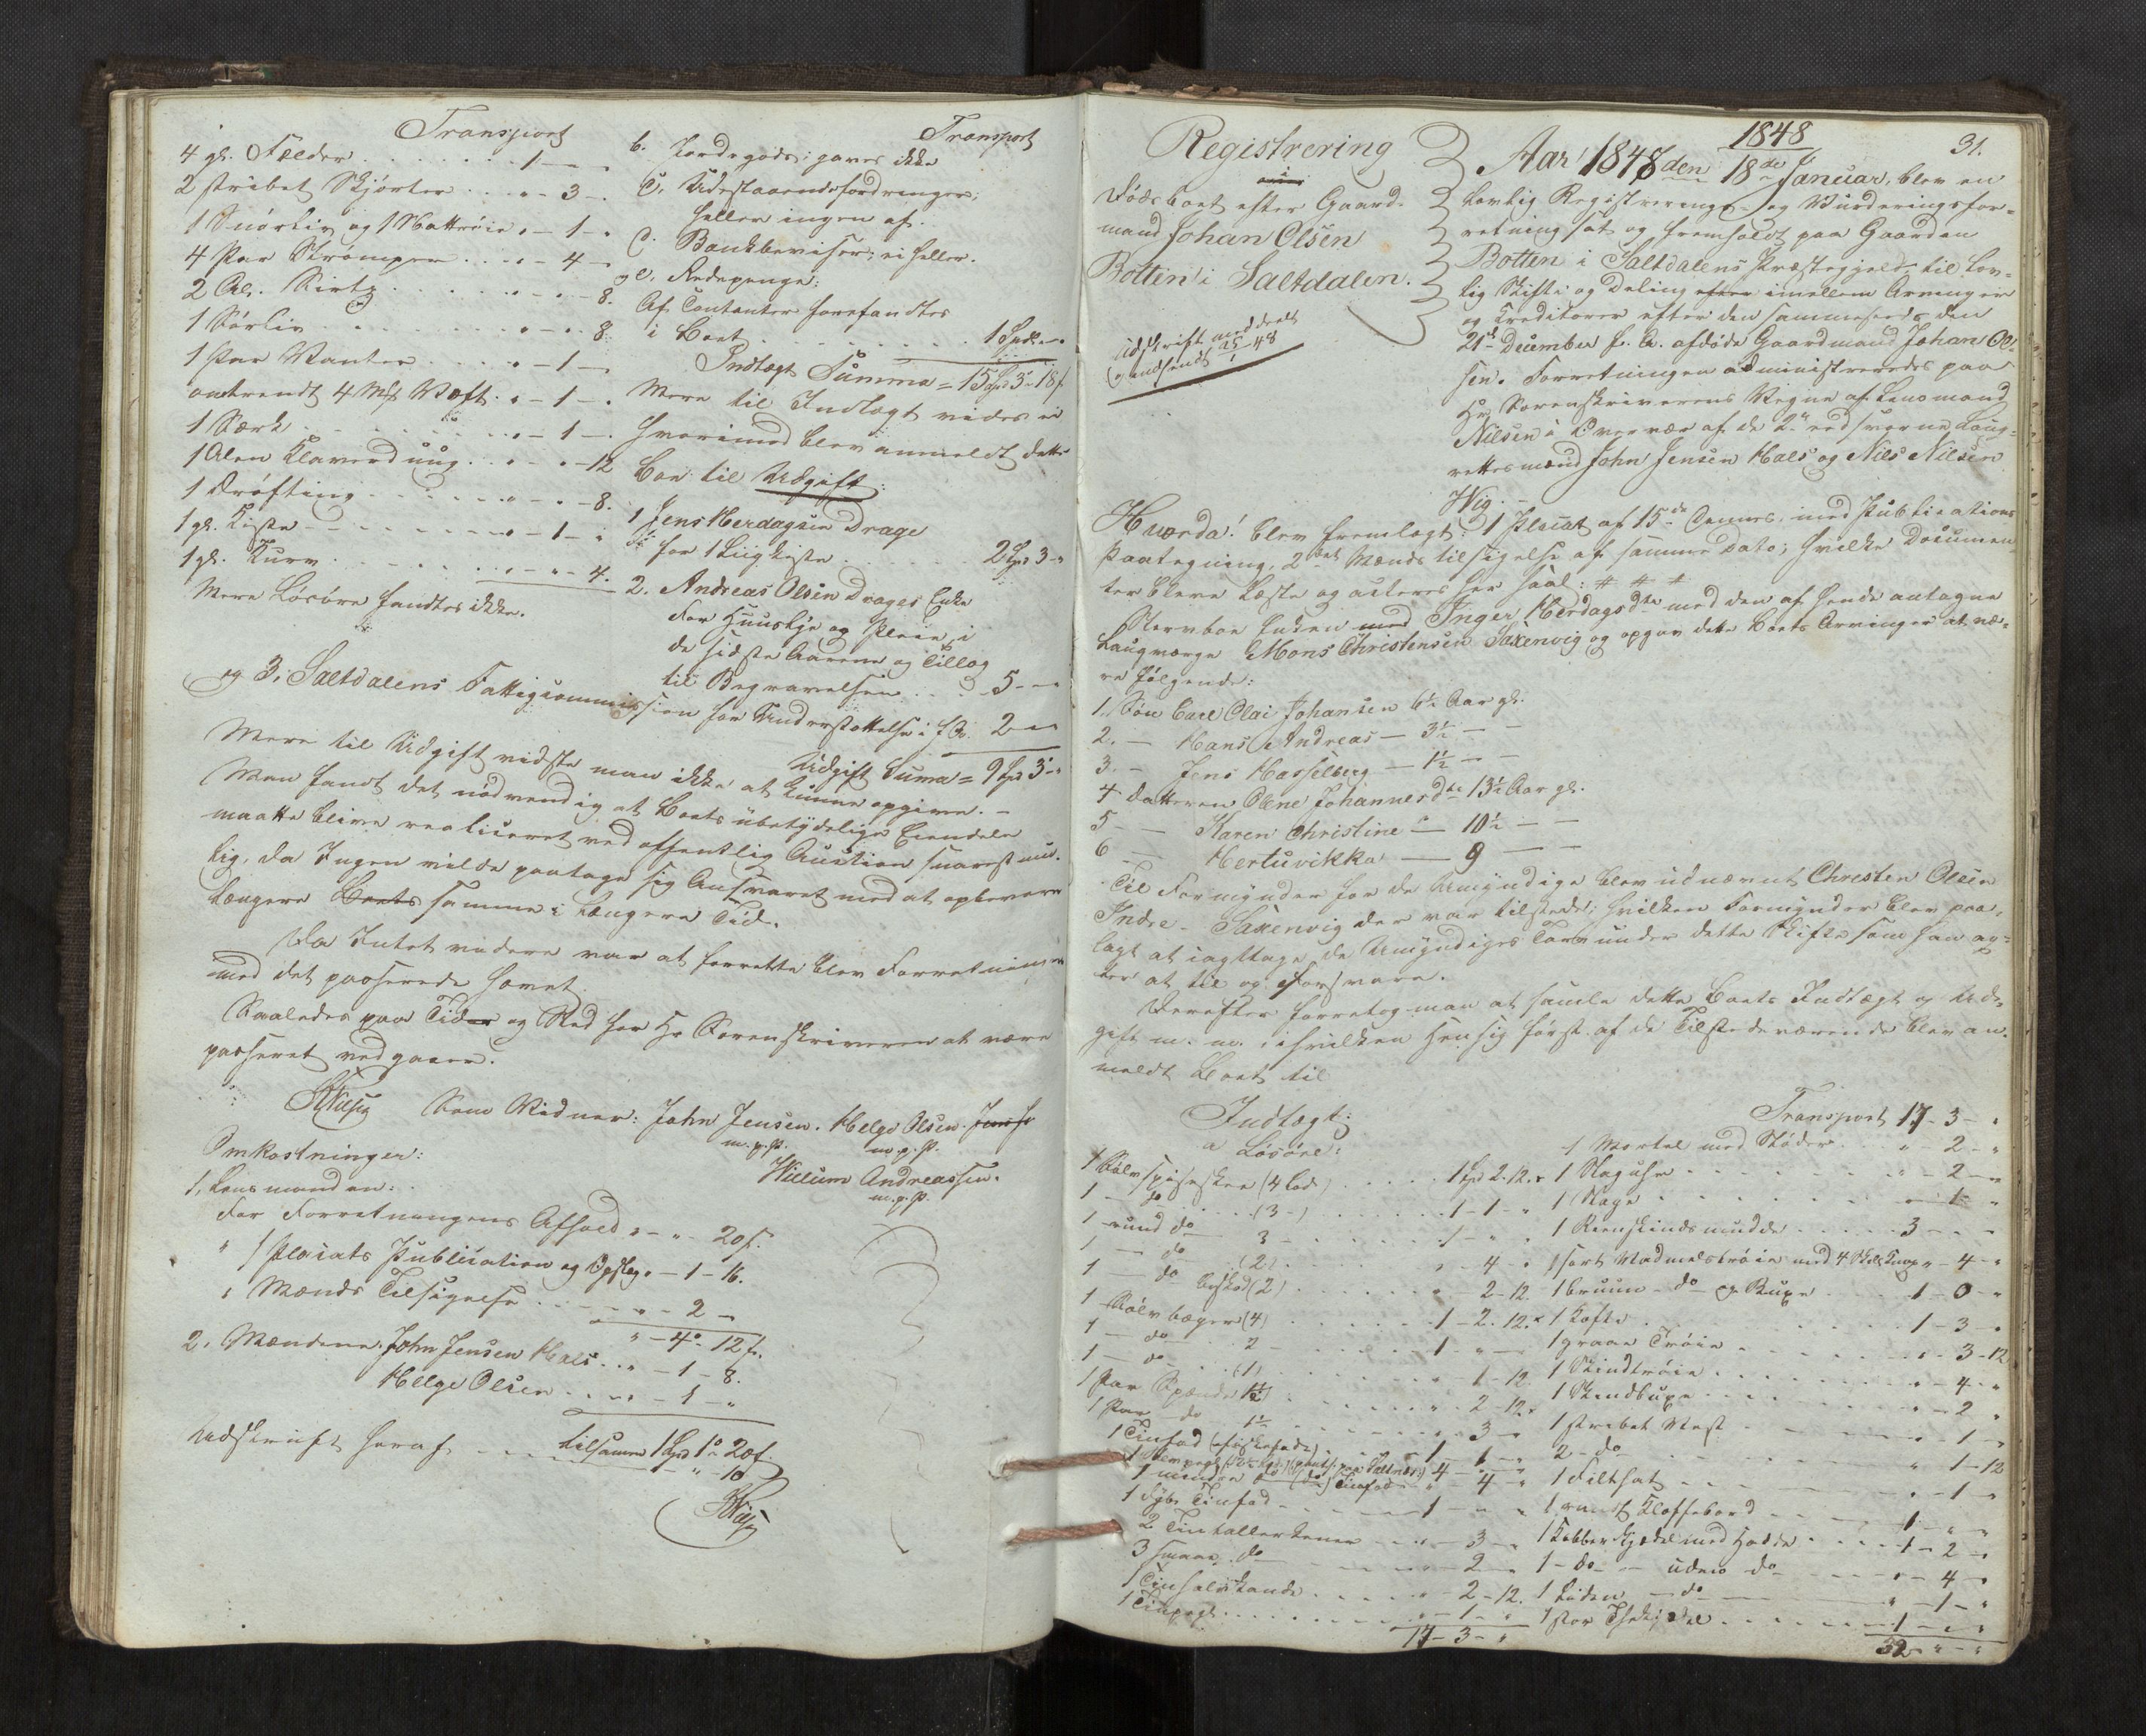 Transport
4 gl. Felder . . . . . . . 1 — "
2 stribet Skjorter . . . " - 3 -
1 Snörliv og 1 Nattröie " - 1 - "
4 Par Strömper . . . " - 4 -
2 Al. Sirtz . . . . . " - " - 8.
1 Sörliv . . . . . . . " - " - 8.
1 Par Vanter . . . . " - 1 -
omtrendt 4 Mk Væft . " - 1 - "
1 Særk . . . . . . . " - 1 -
1 Alen Klaverduug . . " - " - 12
1 Dröfting . . . . . . " - " - 8.
1 gl. Kiste . . . . . . " - 1 - "
1 gl. Kurv . . . . . . " - " - 4.
Mere Lösöre fandtes ikke.
Transport
b. Jordegods; haves ikke
c. Udestaaendefordringer;
heller ingen af.
d. Bankbeviser; ei heller.
e. Redepenge:
Af Contanter forefandtes
i Boet . . . . . . . . . 1 Spd " - "
Indtægt Summa = 15 Spd 3 - 18 s
Mere til Indtægt vides ei
hvorimod blev anmeldt dette
Boe til Udgift:
1 Jens Herdagsen Drage
for 1 Liigkiste . . . . . 2 Spd 3 - "
2. Andreas Olsen Drages Enke
for Huuslye og Pleie, i
de sidste Aarene og Tillæg
til Begravelsen . . . 5 - " - "
og 3, Saltdalens Fattigcommission for Understøttelse i f. A. 2 - "
Udgift Suma = 9 Spd 3 - "
Mere til Udgift vidste man ikke at kunne opgive. -
Man fandt det nödvendig at Boets ubetydelige Eiendele
maatte blive realiseret ved offentlig Auction snarest mu-
lig, da Ingen vilde paatage sig Ansvaret med at opbevare
længere Boets samme i længere Tid.
Da Intet videre var at forrette blev Forretningen
med det passerede hævet.
Saaledes paa Tid og Sted for Hr Sorenskriveren at være
passeret vedgaaer.
Nilsen Som Vidner: John Jensen. Helge Olsen. Jens
m. p. P. m. p. P.
Willum Andreassen.
m. p. P.
Omkostninger:
1, Lensmanden:
For Forretningens Afhold " - " - 20 s.
" 1 Placats Publication og Opslag " - 1 - 16.
" Mænds Tilsigelse . . . . " - 2 -
" - 4 - 12 s.
2, Mændene John Jensen Hals . . " - 1 - 8.
Helge Olsen . . . . " - 1 - "
tilsammen 1 Spd 1 - 20 s.
Udskrift heraf . . . . " - 10
Nilsen
1848
31.
Registrering
i
Dödsboet efter Gaard-
mand Johan Olsen
Botten i Saltdalen.
Udskrift meddeelt
og indsendt 25/1 48
Aar 1848 den 18de Januar, blev en
lovlig Registrerings- og Vurderingsfor-
retning sat og fremholdt paa Gaarden
Botten i Saltdalens Præstegjeld til lov-
lig Skifte og Deling efter imellem Arvinger
og Creditorer efter den sammesteds den
21de December f. A. afdöde Gaardmand Johan Ol-
sen. Forretningen administreredes paa
Hr Sorenskriverens Vegne af Lensmand
Nilsen i Overvær af de 2de eedsvorne Laug-
rettesmænd John Jensen Hals og Nils Nilsen
Vig. -
Hvorda! blev fremlagt: 1 Placat af 15de dennes, med Publications
Paategning, 2de Mænds tilsigelse af samme Dato; hvilke Documen-
ter bleve læste og acteres her saal: # # #
Stervboe Enken med Inger Herdagsdtr med den af hende antagne
Laugværge Mons Christensen Saxenvig og opgav dette Boets Arvinger at væ-
re fölgende:
1, Sön Carl Olai Johansen 6½ Aar gl.
2. — Hans Andreas — 3½ — —
3. — Jens Hasselberg — 1½ — —
4 Datteren Olene Johannesdtr 13½ Aar gl.
5 — — Karen Christine " — 10½ — —
6 — — Hertuvikka — 9 — —
Til Formynder for de Umyndige blev udnævnt Christen Olsen
Indre-Saxenvig der var tilstede; hvilken Formynder blev paa-
lagt at iagttage de Umyndiges Tarv under dette Skifte som han ag-
ter at til og forsvare.
Derefter foretog man at samle dette Boets Indtægt og Ud-
gift m. m. i hvilken Hensig först af de Tilstedeværende blev an-
meldt Boets til
Indtægt:
a Lösöre:
1 Sölvspiseskee (4 Lod) . . . . . 1 Spd 2. 12. "
1 — do . . . (3 -) . . . . . 1 - 1 - "
1 rund do — 3 — . . . . . 1 - " - "
1 — do (2) . . . . . " - 4 - "
1 — do (2) . . . . . " - 2 - 12.
1 Sölvbæger (4) . . . . . 1 - 2. 12. "
1 — do — 2 — . . . . . 1 - " - "
1 — do . . (1) . . . . . " - 1 - 12
1 Par Spænder 1½ . . . . . " 2 - 12.
1 Par do 1½ . . . . . " 3 - "
1 Tinfad (fiskefad) . . . 1 - 1 - "
1 mindre do (do) Tinfad " - 4 - "
1 dybt Tinfad . . . . . 1 - " - "
2 Tintallerkener . . . " - 3 - "
3 smaae do . . . . . . " - 2 - "
1 Tinhalvkande . . . . " - 2 - 12.
1 Tinpægl . . . . . . . " - 1 - "
17 - 3 - "
Transport 17 - 3 - "
1 Mortel med Stöder . . . " - 2 - "
1 Slaguhr . . . . . . . " - 2 - "
1 Stage . . . . . . . . " - 1 - "
1 Reenskindsmudde . . . . . 3 - " - "
1 sort Vadmelströie med 4 Sölvknap " - 4 - "
1 bruun — do — og Buxe . . . 1 - 0 - "
1 Kofte . . . . . . . . 1 - 3 - "
1 graae Tröie . . . . . . " - 3 - 12
1 Skindtröie . . . . . . " - 4 - "
1 Skindbuxe . . . . . . " - 2 "
1 stribet Vest . . . . . . " - 1 - "
2 - do . . . . . . . . " 1 - 12
1 Filthat . . . . . . . . " - 1 - "
1 rundt Klaffebord . . . . . 1 - " - "
1 Kobber Kjedel med Hadde . . . 1 - 2 - "
1 - do — uden do . . . . . " - 4 - "
1 Liden — do — . . . . . . " - 1 - "
1 stor Theekjedel . . . . . . 1 - " - "
32 - " - "